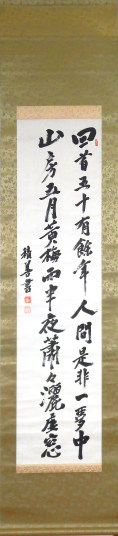 回首五十有餘年人間是非一夢中
山房五月黄梅雨半夜蕭々灑虚窓
積善書